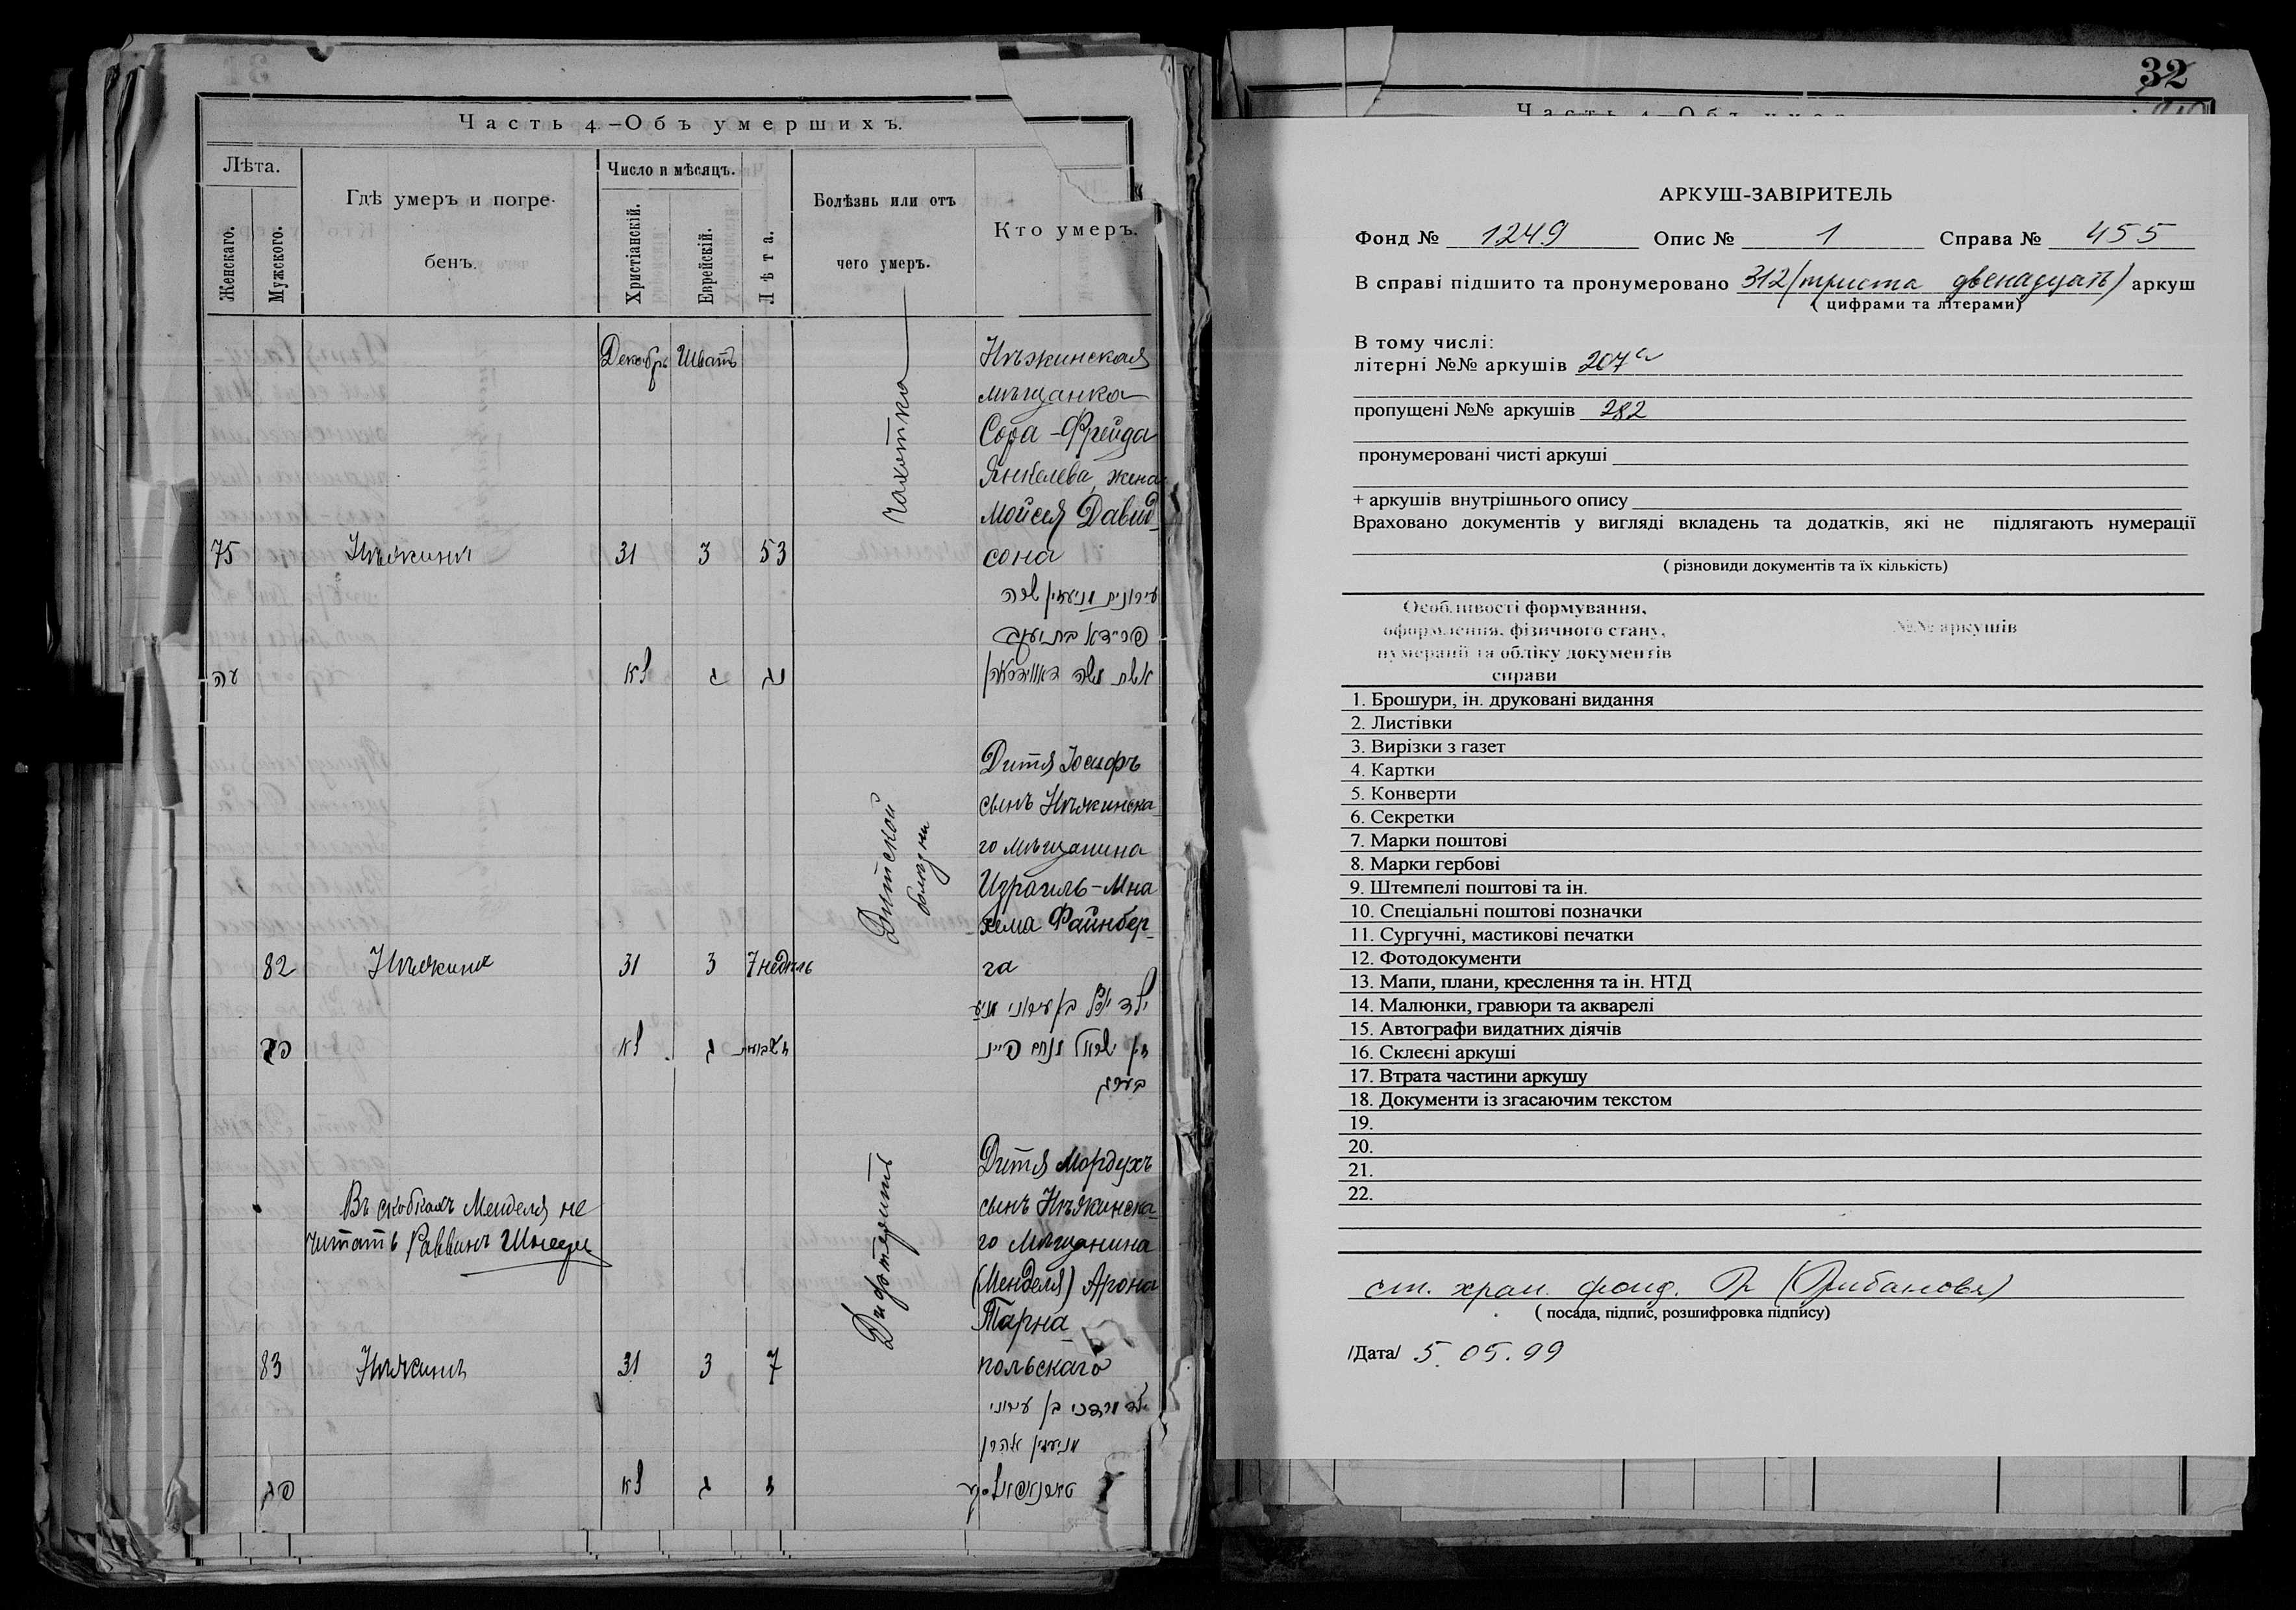 Часть 4.–Объ умершихъ.
Лѣта.
Женскаго.
Мужского.
Гдѣ умеръ и погре-
бенъ.
Число и мѣсяцъ.
Христіанскій.
Еврейскій.
Лѣта.
Болѣзнь или отъ
чего умеръ.
Кто умеръ.
Декабрь Шватъ
Чахотка
Нѣжинская
мѣщанка
Сора-Фрейда
Янкелева, жена
Мойсея Давид-
сона
75 Нѣжинъ 31 3 53
עירונית מניעזין שרה
פריידא בת יעקב
אשת משה דאווידסאהן
עה לא ג נג
Дитской
болѣзни
Дитя Іосифъ
сынъ Нѣжинска-
го мѣщанина
Израиль-Мна
хема Файнбер-
га
82 Нѣжинъ 31 3 7 недѣль
ילד יוסף בן עירוני מניע
זין ישראל מנחם פיינ
בערג
פב לא ג ז שבועות
Дифтеритъ
Дитя Мордухъ
сынъ Нѣжинска-
го Мѣщанина
(Менделя) Арона
Тарна-
польскаго
Въ скобкахъ Менделя не
читать Раввинъ
83 Нѣжинъ 31 3 7
ילד מרדכי בן עירוני
מניעזין אהרן
טארנאפאלסקי
פג לא ג ז
32
Часть 4.–Объ умер
АРКУШ-ЗАВІРИТЕЛЬ
Фонд № 1249 Опис № 1 Справа № 455
В справі підшито та пронумеровано 312 (триста двенадцать) аркуш
( цифрами та літерами)
В тому числі:
літерні №№ аркушів 207а
пропущені №№ аркушів 282
пронумеровані чисті аркуші
+ аркушів внутрішнього опису
Враховано документів у вигляді вкладень та додатків, які не підлягають нумерації
( різновиди документів та їх кількість)
Особливості формування,
оформлення, фізичного стану,
нумерації та обліку документів
справи
№№ аркушів
1. Брошури, ін. друковані видання
2. Листівки
3. Вирізки з газет
4. Картки
5. Конверти
6. Секретки
7. Марки поштові
8. Марки гербові
9. Штемпелі поштові та ін.
10. Спеціальні поштові позначки
11. Сургучні, мастикові печатки
12. Фотодокументи
13. Мапи, плани, креслення та ін. НТД
14. Малюнки, гравюри та акварелі
15. Автографи видатних діячів
16. Склеєні аркуші
17. Втрата частини аркушу
18. Документи із згасаючим текстом
19.
20.
21.
22.
ст. хран. фонд.
( посада, підпис, розшифровка підпису)
/Дата/ 5.05.99